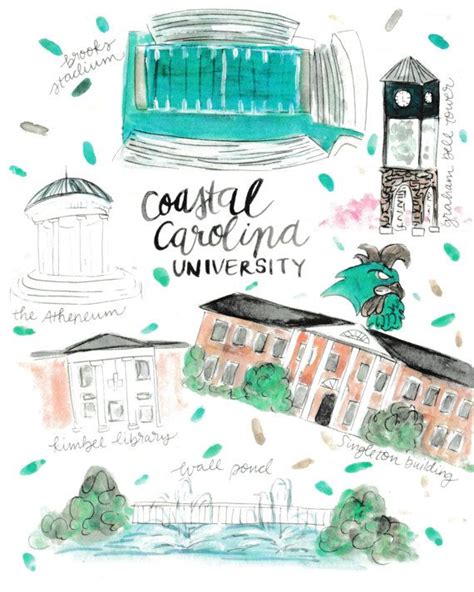 brooks
stadium
graham bell tower
coastal
Carolina
UNIVERSITY
the Atheneum
kimbel library
Singleton building
wall pond